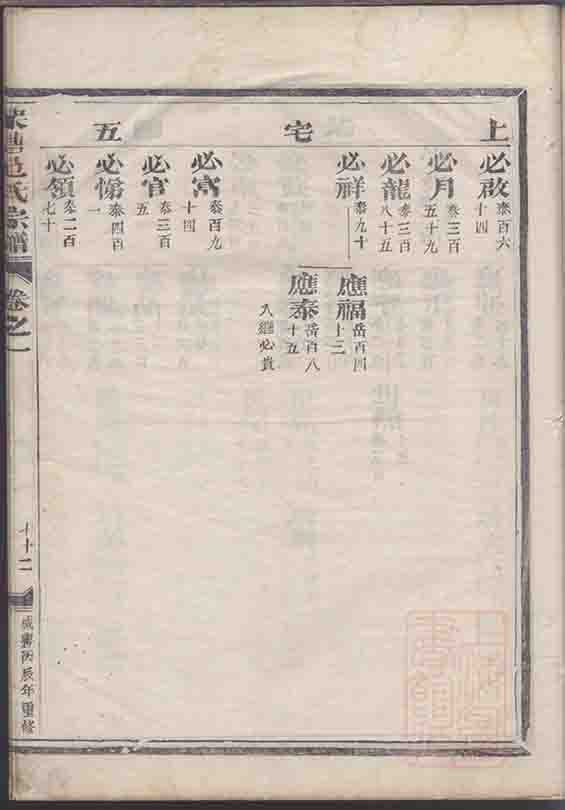 上宅五
必啟 泰百六十四
必月 泰三百五十九
必龍 泰三百八十五
必祥 泰九十
應福 岳百四十三
應泰 岳百八十五
入繼必貴
必富 泰百九十四
必官 泰三百五
必悌 泰四百一
必領 泰二百七十
氏宗譜
卷之一
十二
咸豐丙辰年重修